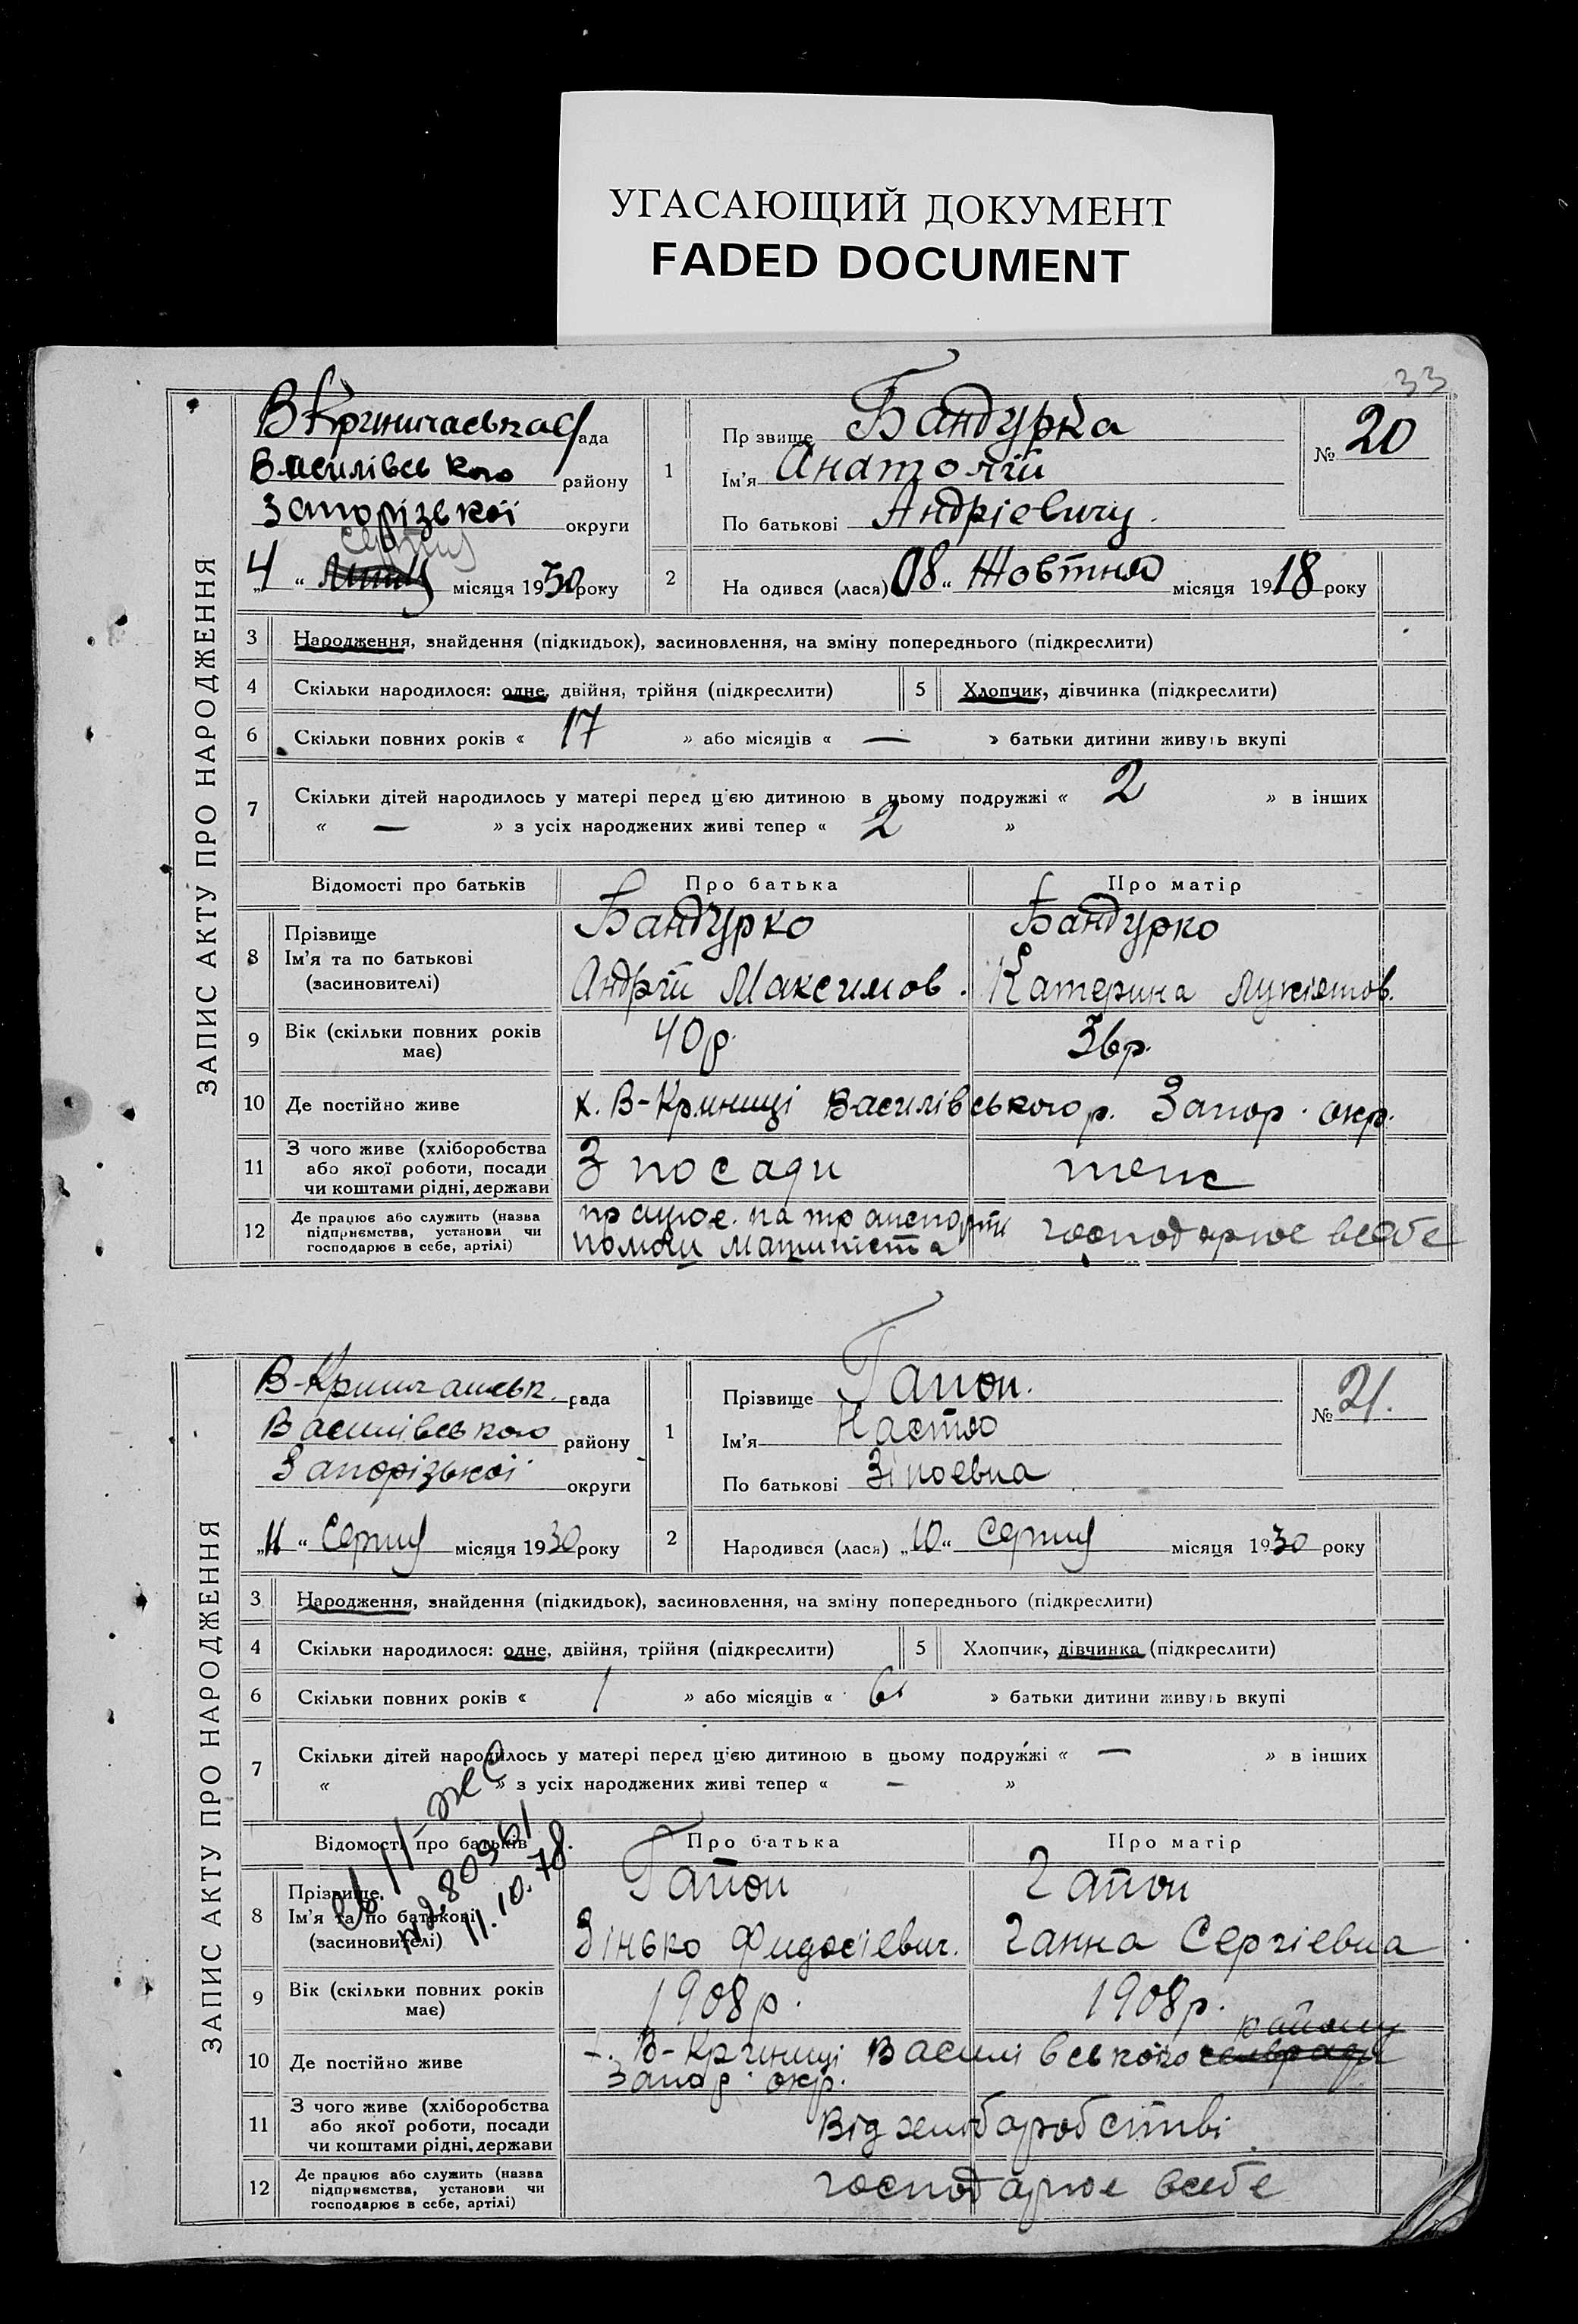 УГАСАЮЩИЙ ДОКУМЕНТ
FADED DOCUMENT
33
ЗАПИС АКТУ ПРО НАРОДЖЕННЯ
В Криничаська рада
Василівського району
Запорізької округи
серпня
„4“ місяця 1930 року
1
Пр звище Бандурка
Ім'я Анатолій
По батькові Андрієвичу.
№ 20
2
На одився (лася) 08 “ Жовтня місяця 1918 року
3 Народження, знайдення (підкидьок), засиновлення, на зміну попереднього (підкреслити)
4 Скільки народилося: одне, двійня, трійня (підкреслити) 5 Хлопчик, дівчинка (підкреслити)
6 Скільки повних років « 17 » або місяців « — » батьки дитини живуть вкупі
7 Скільки дітей народилось у матері перед ц'єю дитиною в цьому подружжі « 2 » в інших
« — » з усіх народжених живі тепер « 2 »
Відомості про батьків Про батька Про матір
8 Прізвище Ім'я та по батькові (засиновителі)
Бандурко Бандурко
Андрій Максимов. Катерина
9 Вік (скільки повних років має) 40 р. 36 р.
10 Де постійно живе х. В-Криниці Василівського р. Запор. окр.
11 З чого живе (хліборобства або якої роботи, посади чи коштами рідні, держави З посади теж
12 Де працює або служить (назва підприємства, установи чи господарює в себе, артілі)
працює на транспорті господарює всебе
помощ машиніста
ЗАПИС АКТУ ПРО НАРОДЖЕННЯ
В-Криничанськ. рада
Василівського району
Запорізької округи
„11“ Серпня місяця 1930 року
1
Прізвище Гапон.
Ім'я Настя
По батькові Зіновевна
№ 21.
2
Народився (лася) „10“ Серпня місяця 1930 року
3 Народження, знайдення (підкидьок), засиновлення, на зміну попереднього (підкреслити)
4 Скільки народилося: одне, двійня, трійня (підкреслити) 5 Хлопчик, дівчинка (підкреслити)
6 Скільки повних років « 1 » або місяців « 6 » батьки дитини живуть вкупі
7 Скільки дітей народилось у матері перед ц'єю дитиною в цьому подружжі « — » в інших
« » з усіх народжених живі тепер « - »
11.10.78.
Відомості про батьків Про батька Про матір
8 Прізвище, Ім'я та по батькові (засиновителі)
Гапон Гапон
Зінько Фидосієвич. Ганна Сергієвна
9 Вік (скільки повних років має) 1908 р. 1908 р.
району
10 Де постійно живе х. В-Криниці Василівського сельради
Запор. окр.
11 З чого живе (хліборобства або якої роботи, посади чи коштами рідні, держави Від хліборобстві
12 Де працює або служить (назва підприємства, установи чи господарює в себе, артілі) господарює всебе